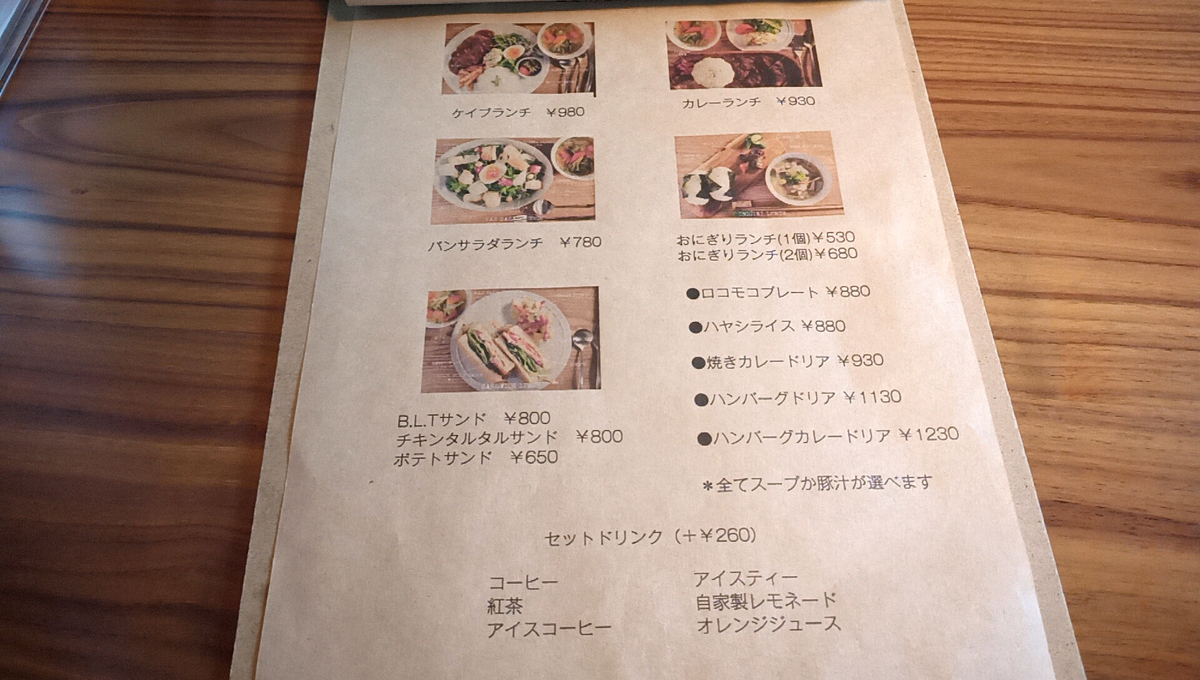 ケイブランチ ￥980
カレーランチ ￥930
パンサラダランチ ￥780
おにぎりランチ(1個)￥530
おにぎりランチ(2個)￥680
B.L.Tサンド ￥800
チキンタルタルサンド ￥800
ポテトサンド ￥650
●ロコモコプレート ￥880
●ハヤシライス ￥880
●焼きカレードリア ￥930
●ハンバーグドリア ￥1130
●ハンバーグカレードリア ￥1230
＊全てスープか豚汁が選べます
セットドリンク（＋￥260）
コーヒー
紅茶
アイスコーヒー
アイスティー
自家製レモネード
オレンジジュース